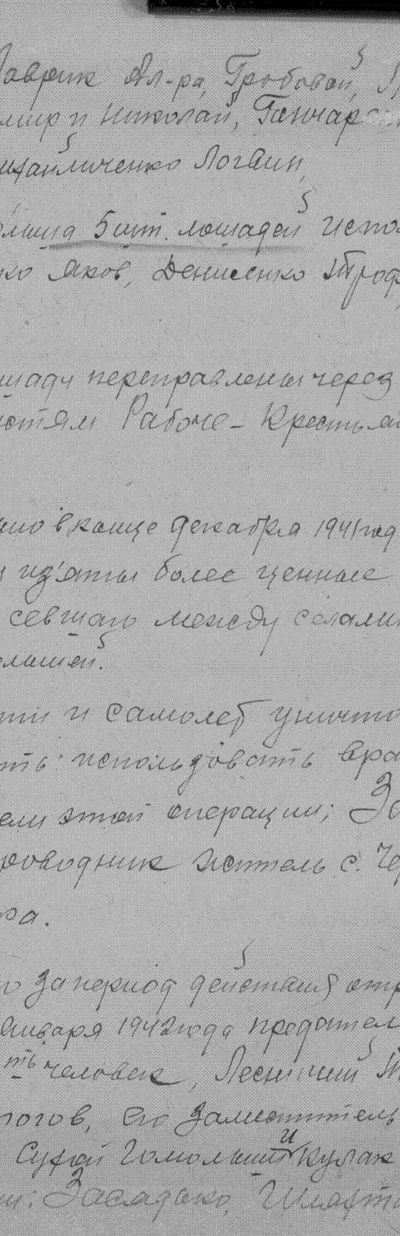 Гаврик Ал-ра, Гробовой,
мир и Николай, Ганчар
ихайличенко Логвин,
5 шт. лошадей испо
ко Яков, Денисенко Троф
шади переправлены через
стям Рабоче-Крестья
но в конце декабря 1941 год
из'яты более ценные
севшаго между селами
ольшей.
ти и самолет уничто
ть использовать вра
ели этой операции; За
роводник житель с. Че
ра.
о за период действия отр
января 1942 года предател
ть человек, Лесничий
логов, его заместитель
Сухой Гомольши и кулак
и: Засядько, Шляхт